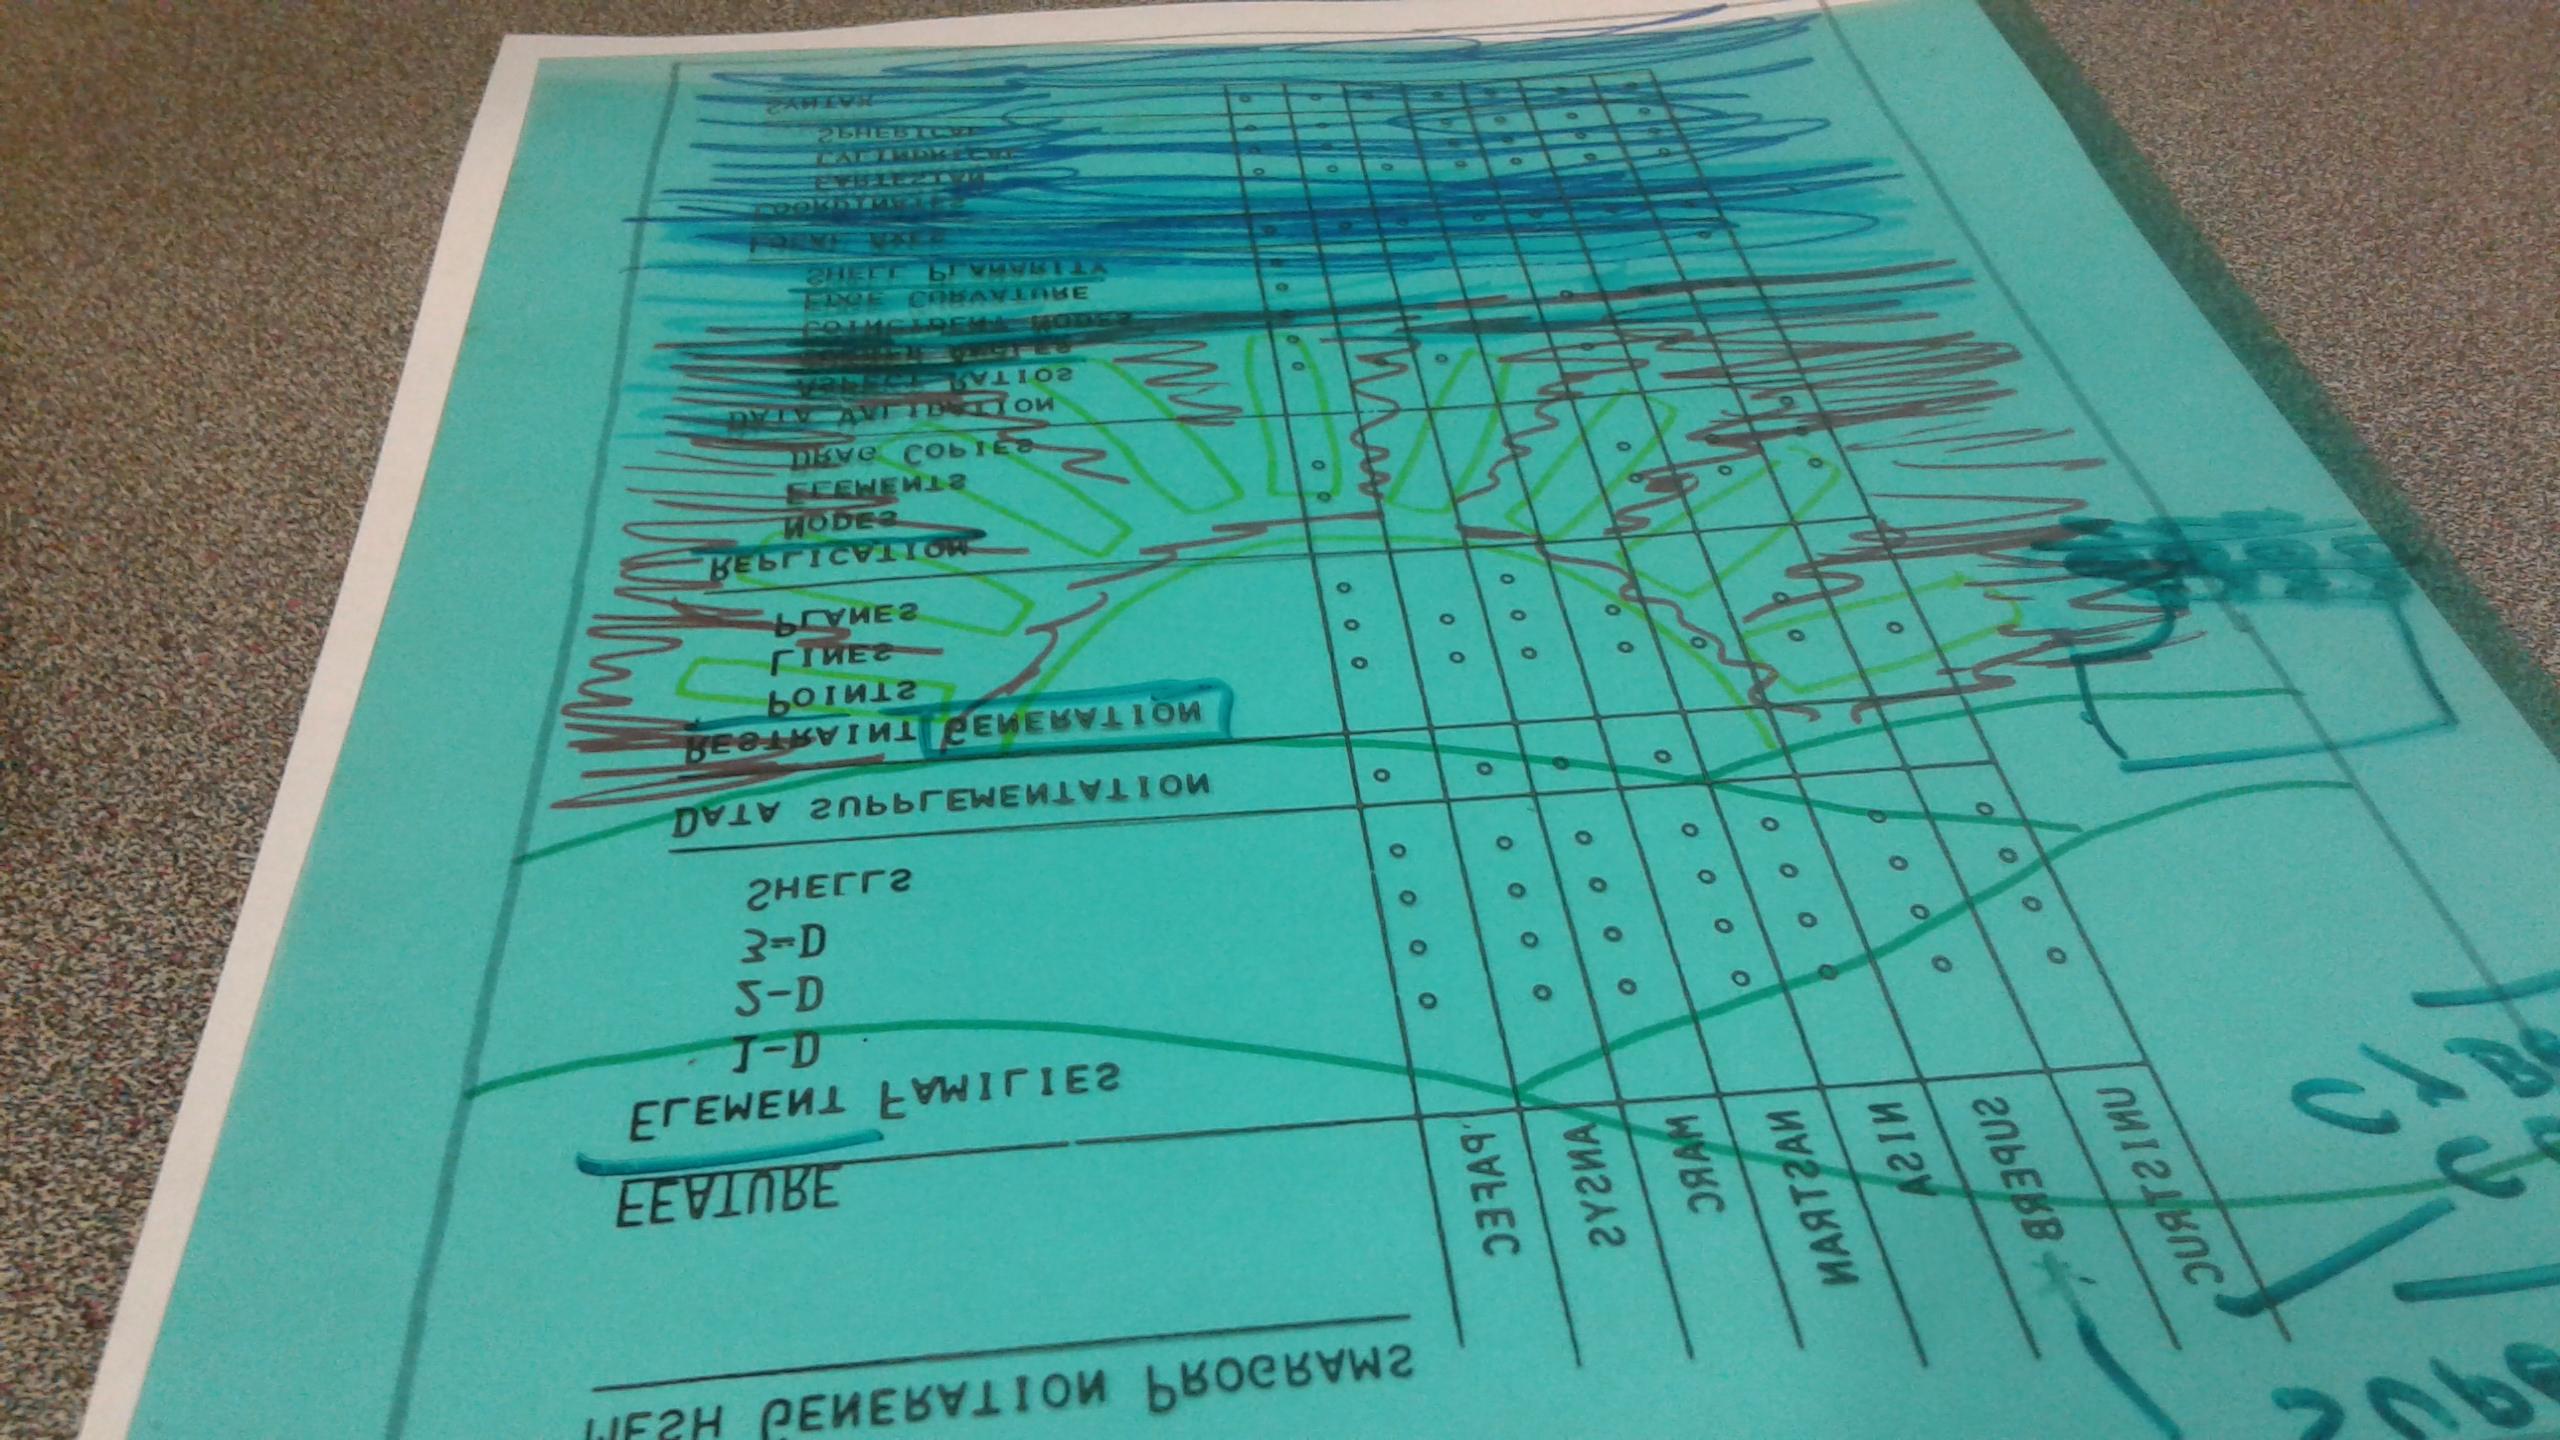 MESH GENERATION PROGRAMS
FEATURE
PAFEC
ANSYS
MARC
NASTRAN
NISA
SUPERB
UNISTRUC
ELEMENT FAMILIES
1-D
2-D
3-D
SHELLS
DATA SUPPLEMENTATION
RESTRAINT GENERATION
POINTS
LINES
PLANES
REPLICATION
NODES
ELEMENTS
DRAG COPIES
DATA VALIDATION
ASPECT RATIOS
ANGLES
COINCIDENT NODES
EDGE CURVATURE
SHELL PLANARITY
LOCAL AXES
COORDINATES
CARTESIAN
CYLINDRICAL
SPHERICAL
SYNTAX